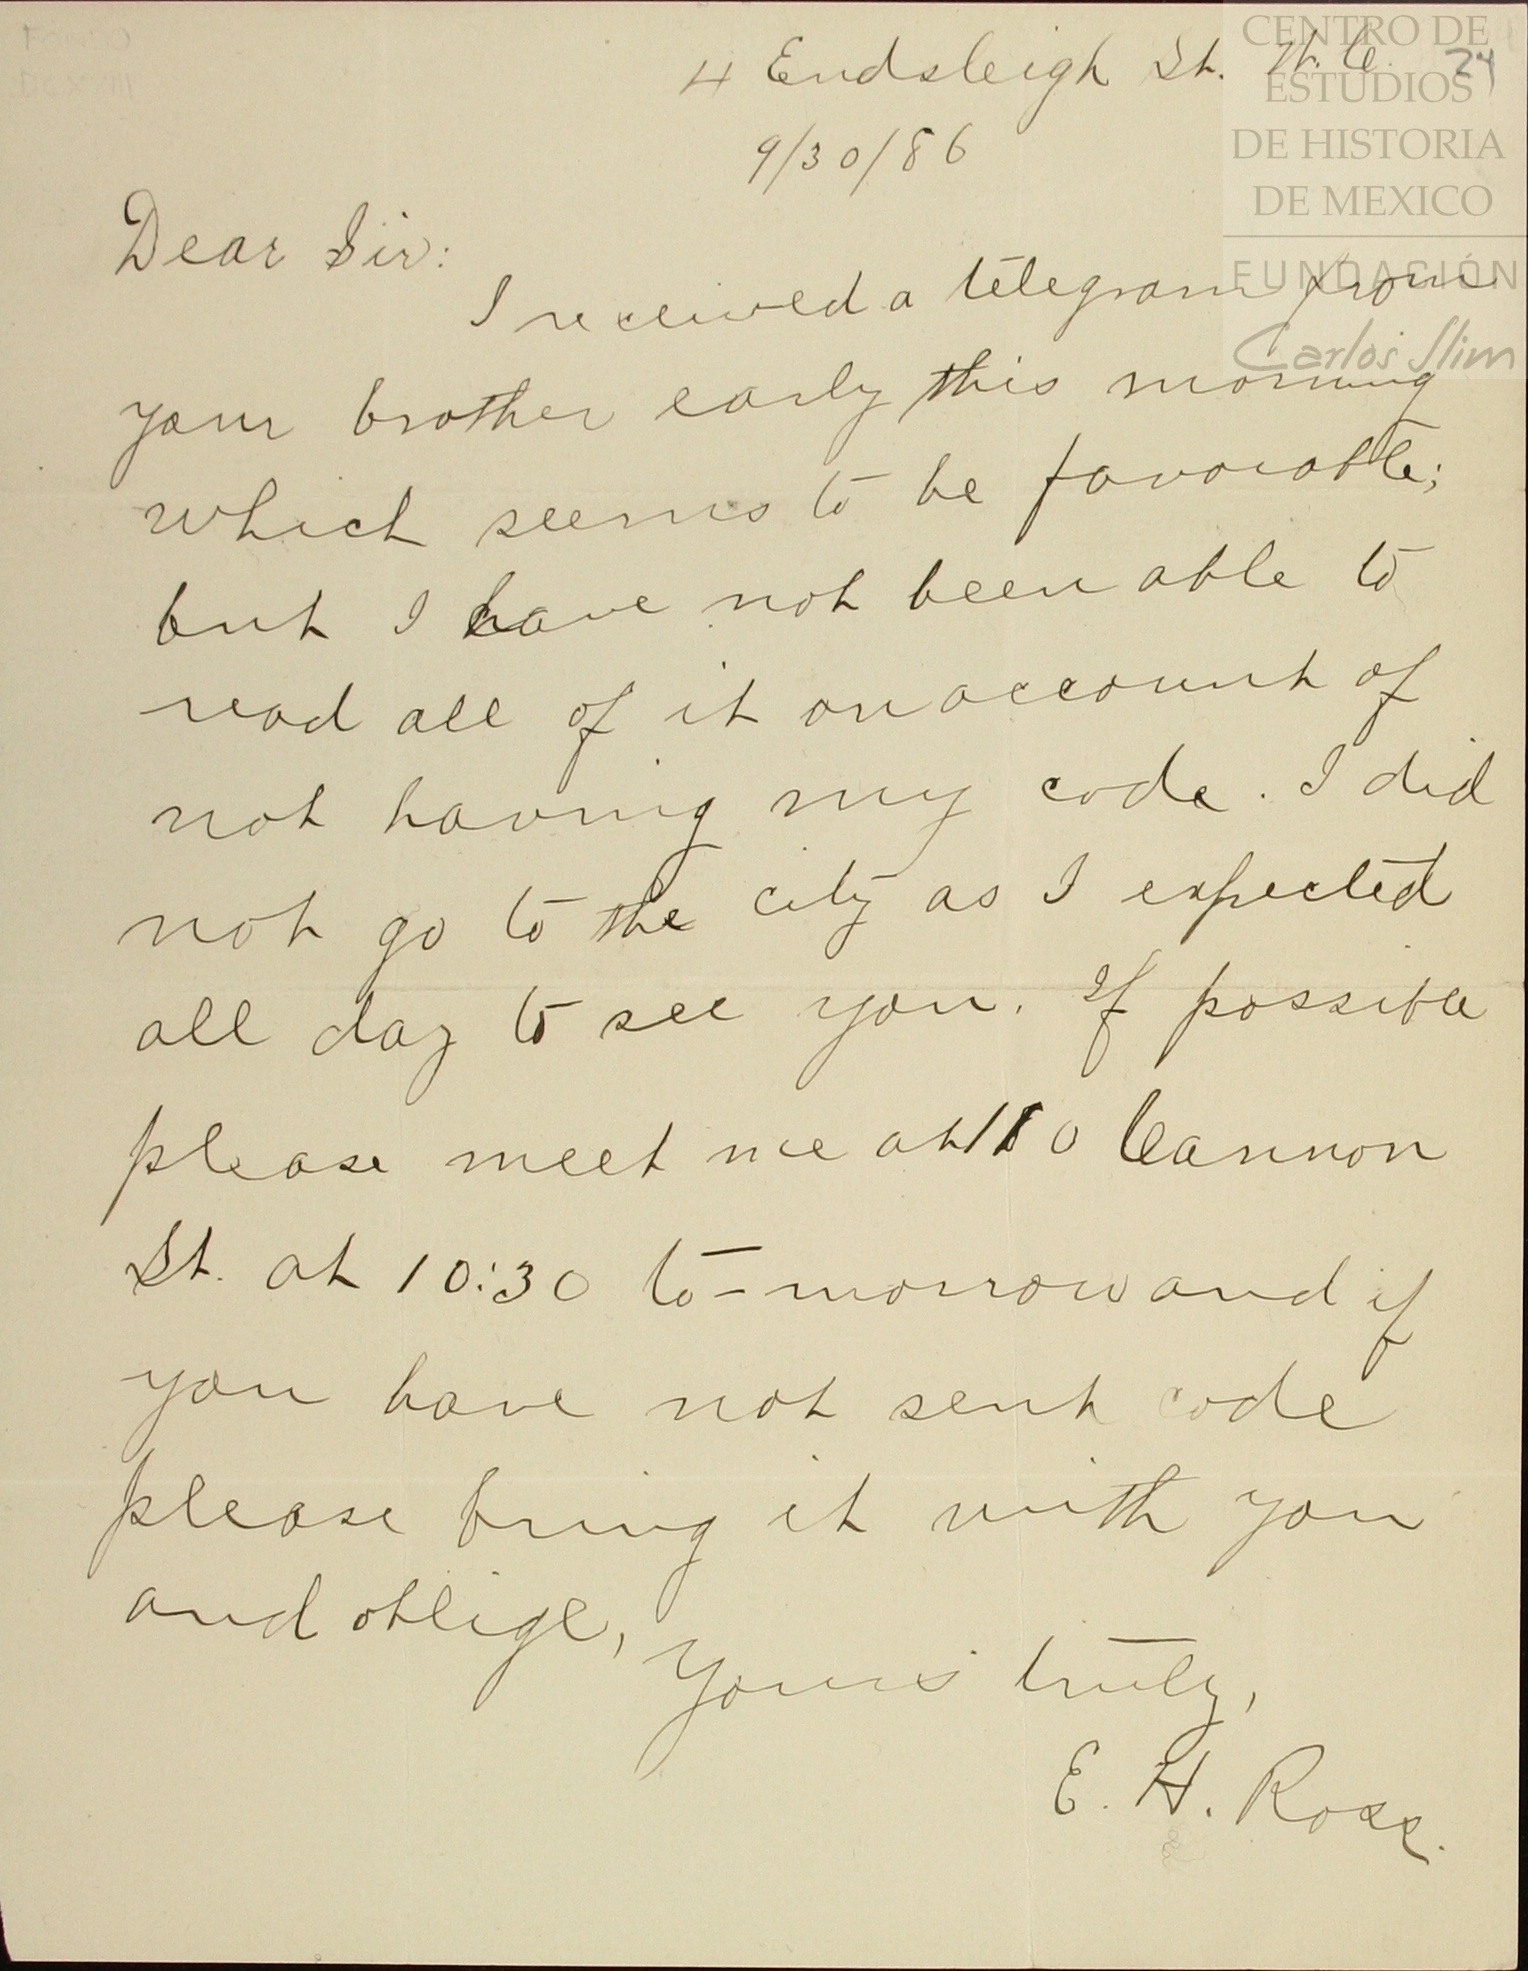 4 Endsleigh St. W.C.
24
9/30/86
Dear Sir:
I received a telegram from
your brother early this morning
which seems to be favorable;
but I have not been able to
read all of it on account of
not having my code. I did
not go to the city as I expected
all day to see you. If possible
please meet me at 110 Cannon
St. at 10:30 to-morrow and if
you have not sent code
please bring it with you
and oblige,
Yours truly,
E. H. Ross.
CENTRO DE
ESTUDIOS
DE HISTORIA
DE MEXICO
FUNDACIÓN
Carlos Slim